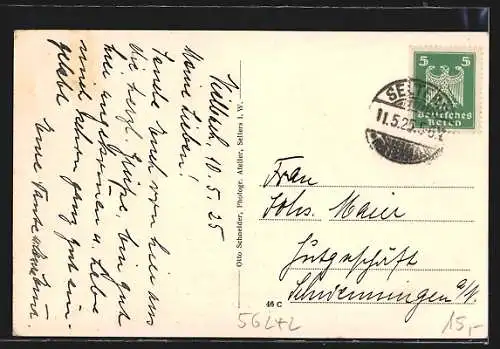 Vielbach, 10.5.25
Meine Lieben!
Sende Euch von hier aus
die herzl. Grüße, bin gut
hier angekommen u. habe
mich schon ganz gut ein-
gelebt
Eure Tante
Otto Schneider, Photogr. Atelier, Selters i. W.
46 C
5 5
Deutsches
Reich
SELTERS
11.5.25
Frau
Johs. Maier
Hutgeschäft
Schwenningen a/N.
56242
15,-